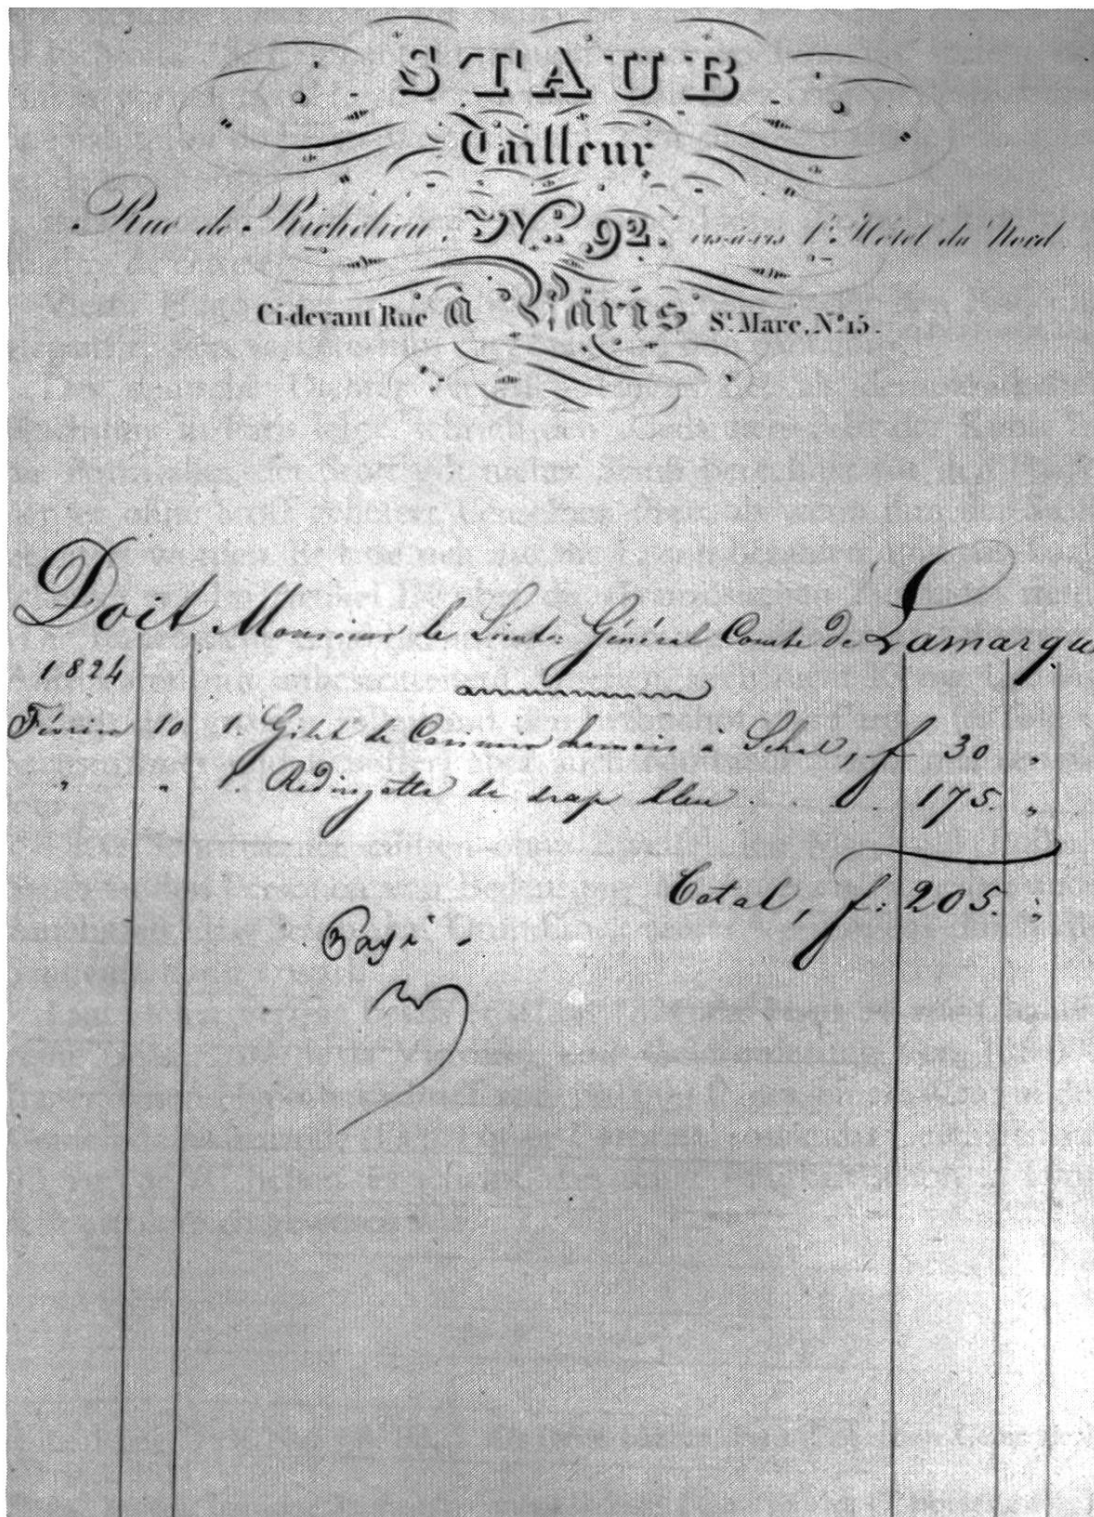 STAUB
Tailleur
Rue de Richelieu, No. 92. vis-à-vis l'Hôtel du Nord
Ci-devant Rue à Paris St. Marc, No. 15.
Doit Monsieur le Lieutt. Général Comte de Lamarque
1824
Février 10 1. Gilet de Casimir chamois à Schal, f 30 "
" " 1. Redingotte de drap bleu . . . 175. "
Total, f: 205. "
Payé -